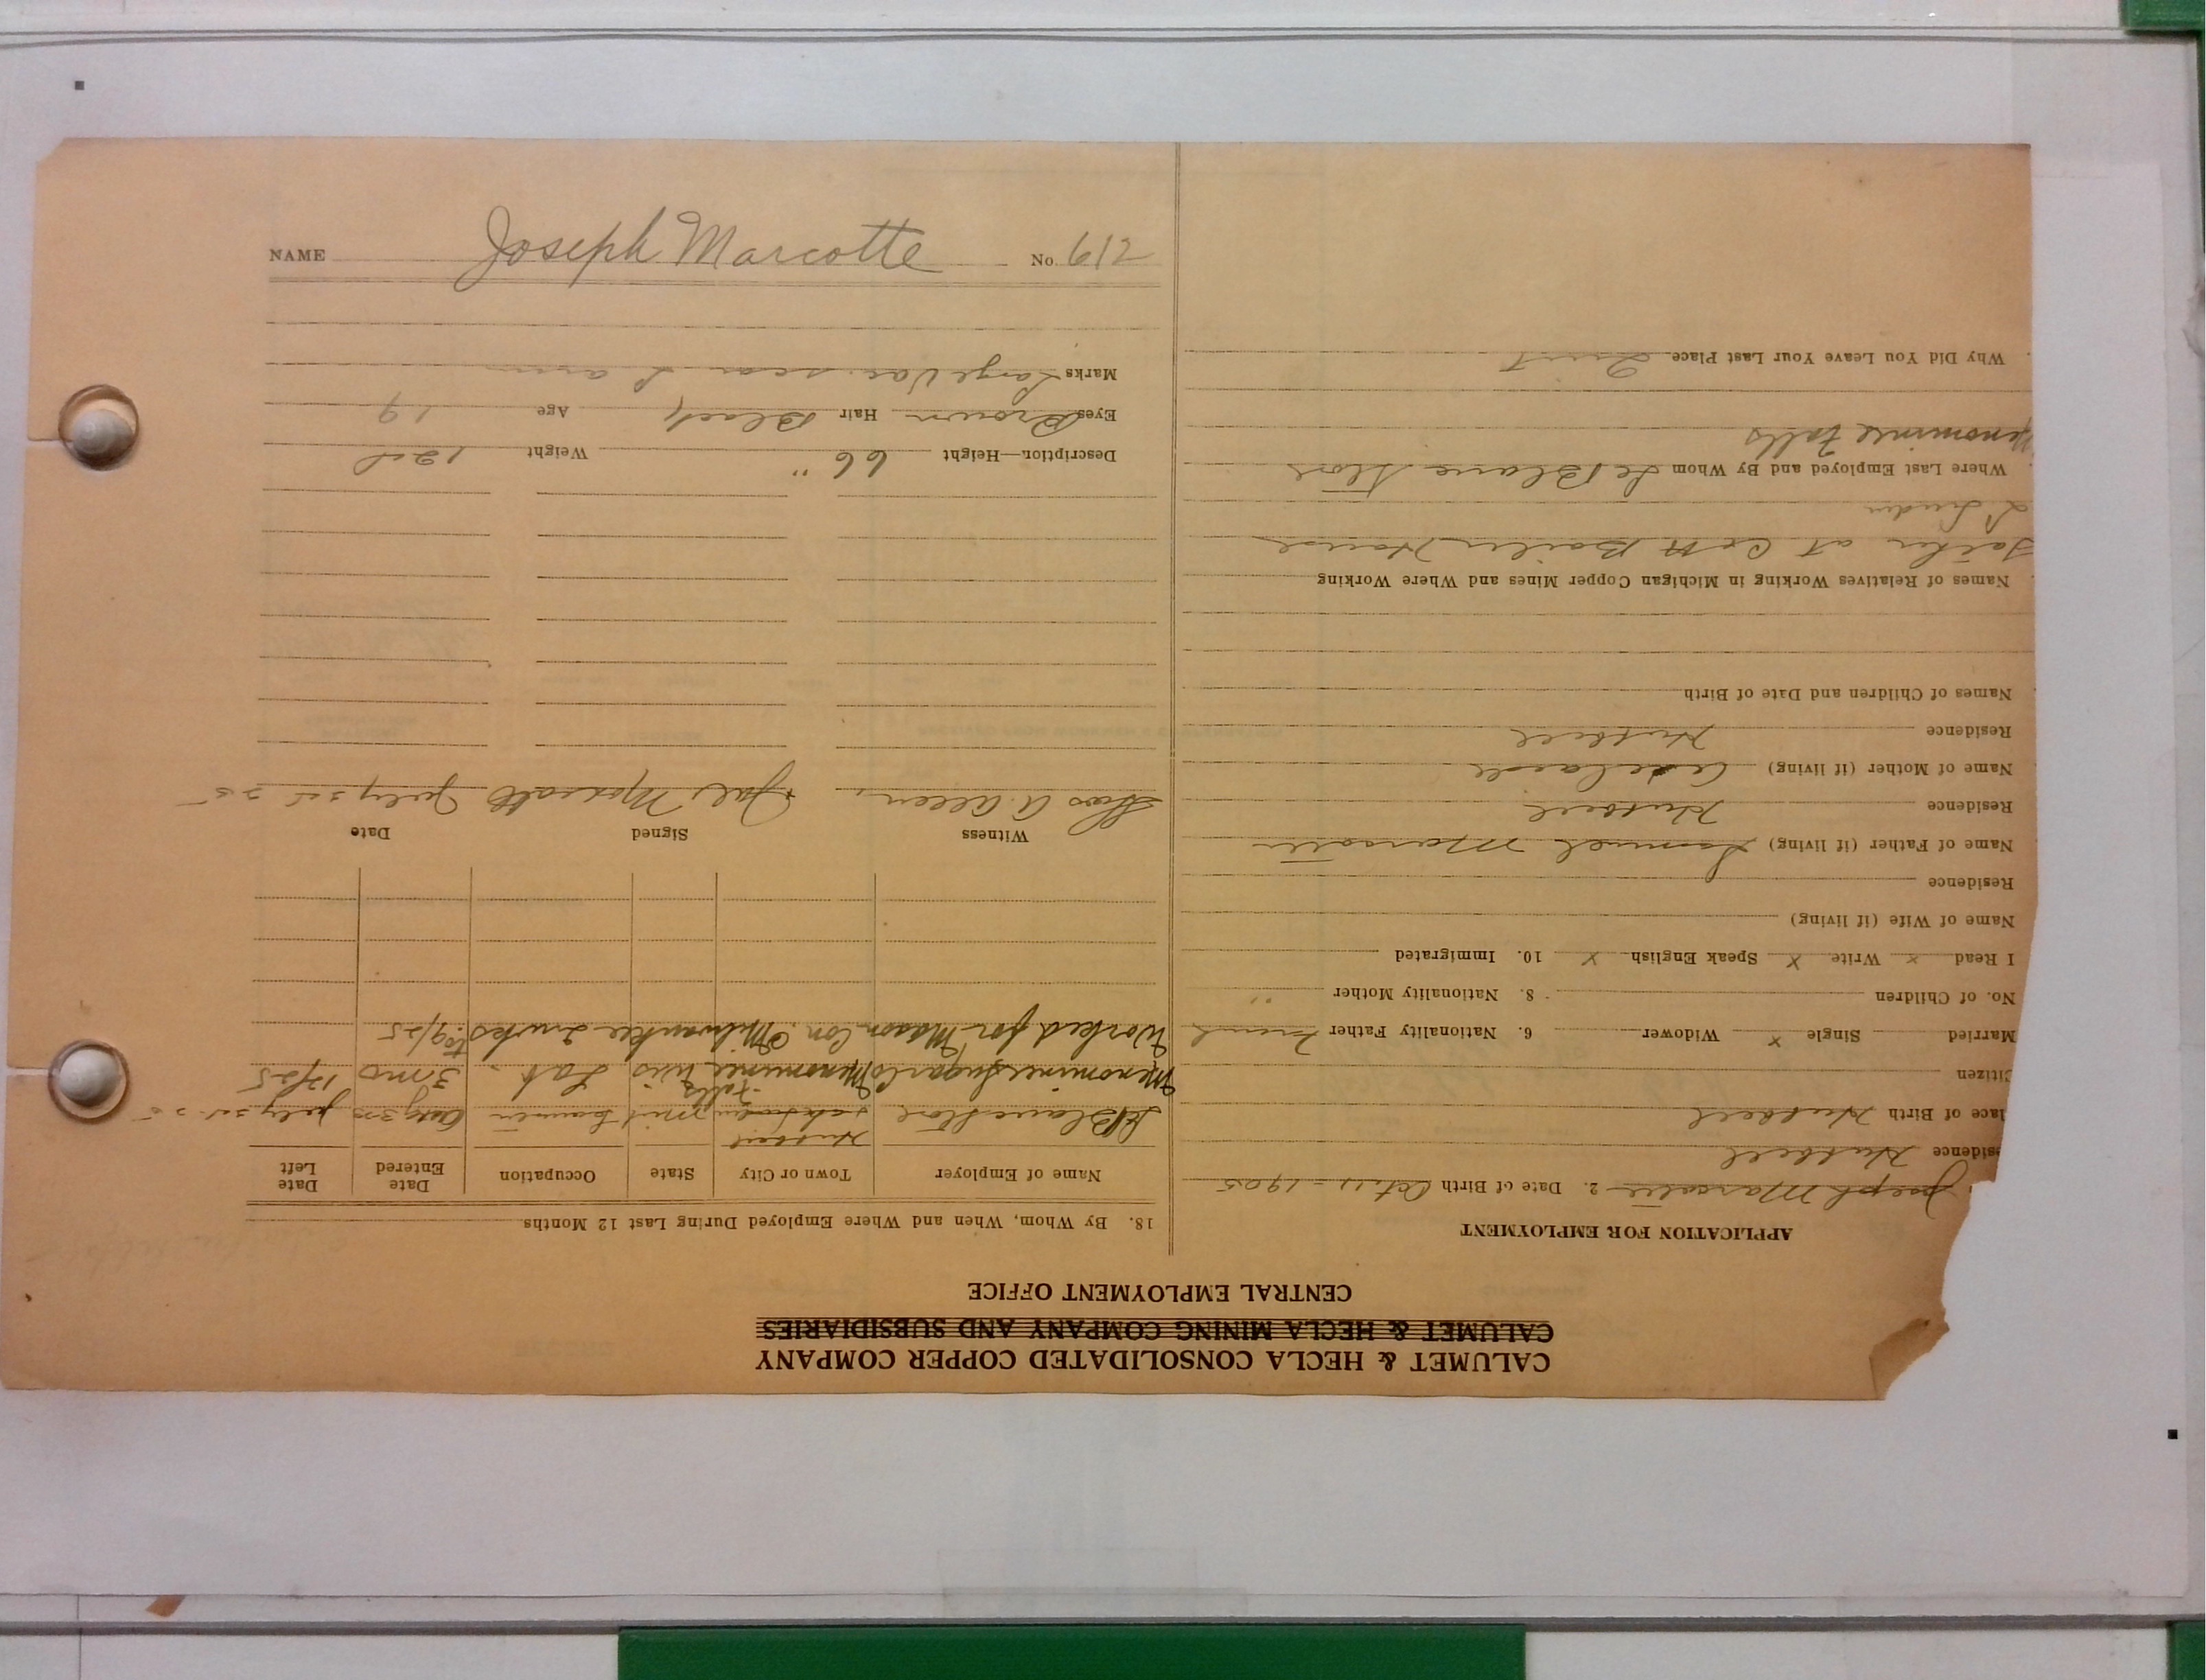 NAME Joseph Marcotte No. 612
CALUMET & HECLA CONSOLIDATED COPPER COMPANY
CALUMET & HECLA MINING COMPANY AND SUBSIDIARIES
CENTRAL EMPLOYMENT OFFICE
APPLICATION FOR EMPLOYMENT
Joseph Marcotte 2. Date of Birth Oct. 11 - 1905
Residence Hubbell
Place of Birth Hubbell
Citizen
Married Single x Widower 6. Nationality Father French
No. of Children 8. Nationality Mother "
I Read x Write x Speak English x 10. Immigrated
Name of Wife (if living)
Residence
Name of Father (if living) Samuel Marcotte
Residence Hubbell
Name of Mother (if living)
Residence Hubbell
Names of Children and Date of Birth
Names of Relatives Working in Michigan Copper Mines and Where Working
Father at C & H Boiler House
L Linden
Where Last Employed and By Whom Le Blanc Store
Menominee Falls
Why Did You Leave Your Last Place Quit
18. By Whom, When and Where Employed During Last 12 Months
Name of Employer Town or City State Occupation Date Entered Date Left
Hubbell
Le Blanc Store Mich
Menominee Sugar Co Menominee Falls Wis Lab. 3 mo 12/25
Worked for Mason Con. Milwaukee 2 wks. to 9/25
Witness Signed Date
Thos A. Allen July
Description—Height 66" Weight
Eyes Brown Hair Black Age 19
Marks Large Vac. scar L arm